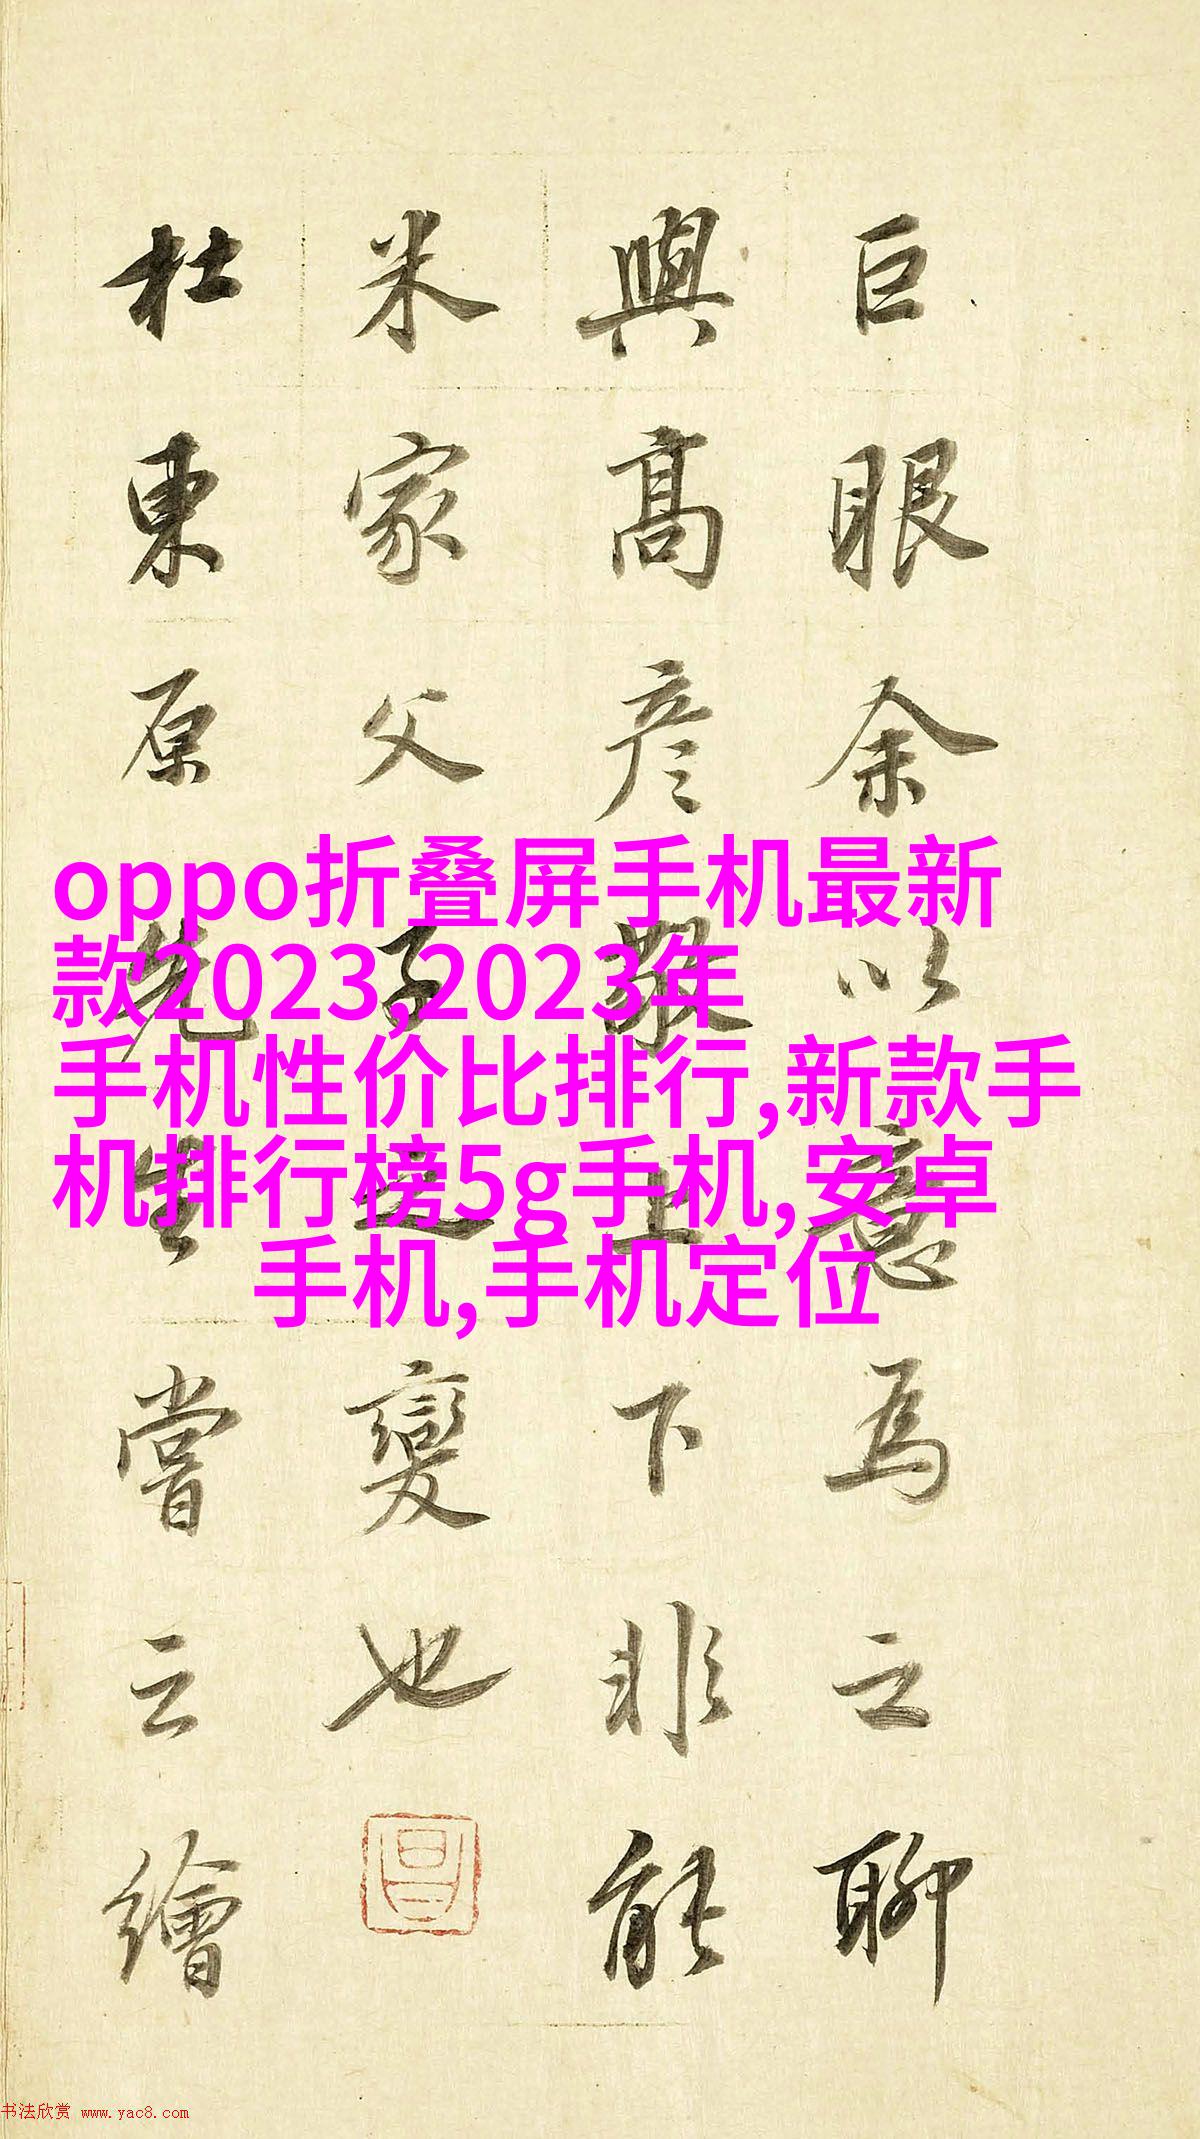 巨眼余以意為之聊
與高彦敬上下非能
米家父子之變也
杜東原先生嘗云繪
oppo折叠屏手机最新
款2023,2023年
手机性价比排行,新款手
机排行榜5g手机,安卓
手机,手机定位
书法欣赏 www.yac8.com